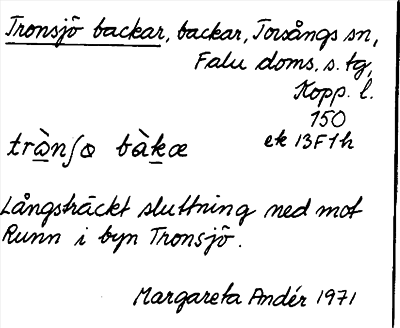 Tronsjö backar, backar, Torsångs sn,
Falu doms. s. tg,
Kopp. l.
150
ek 13F1h
trànʃɷ bàkæ
Långsträckt sluttning ned mot
Runn i byn Tronsjö.
Margareta Andér 1971